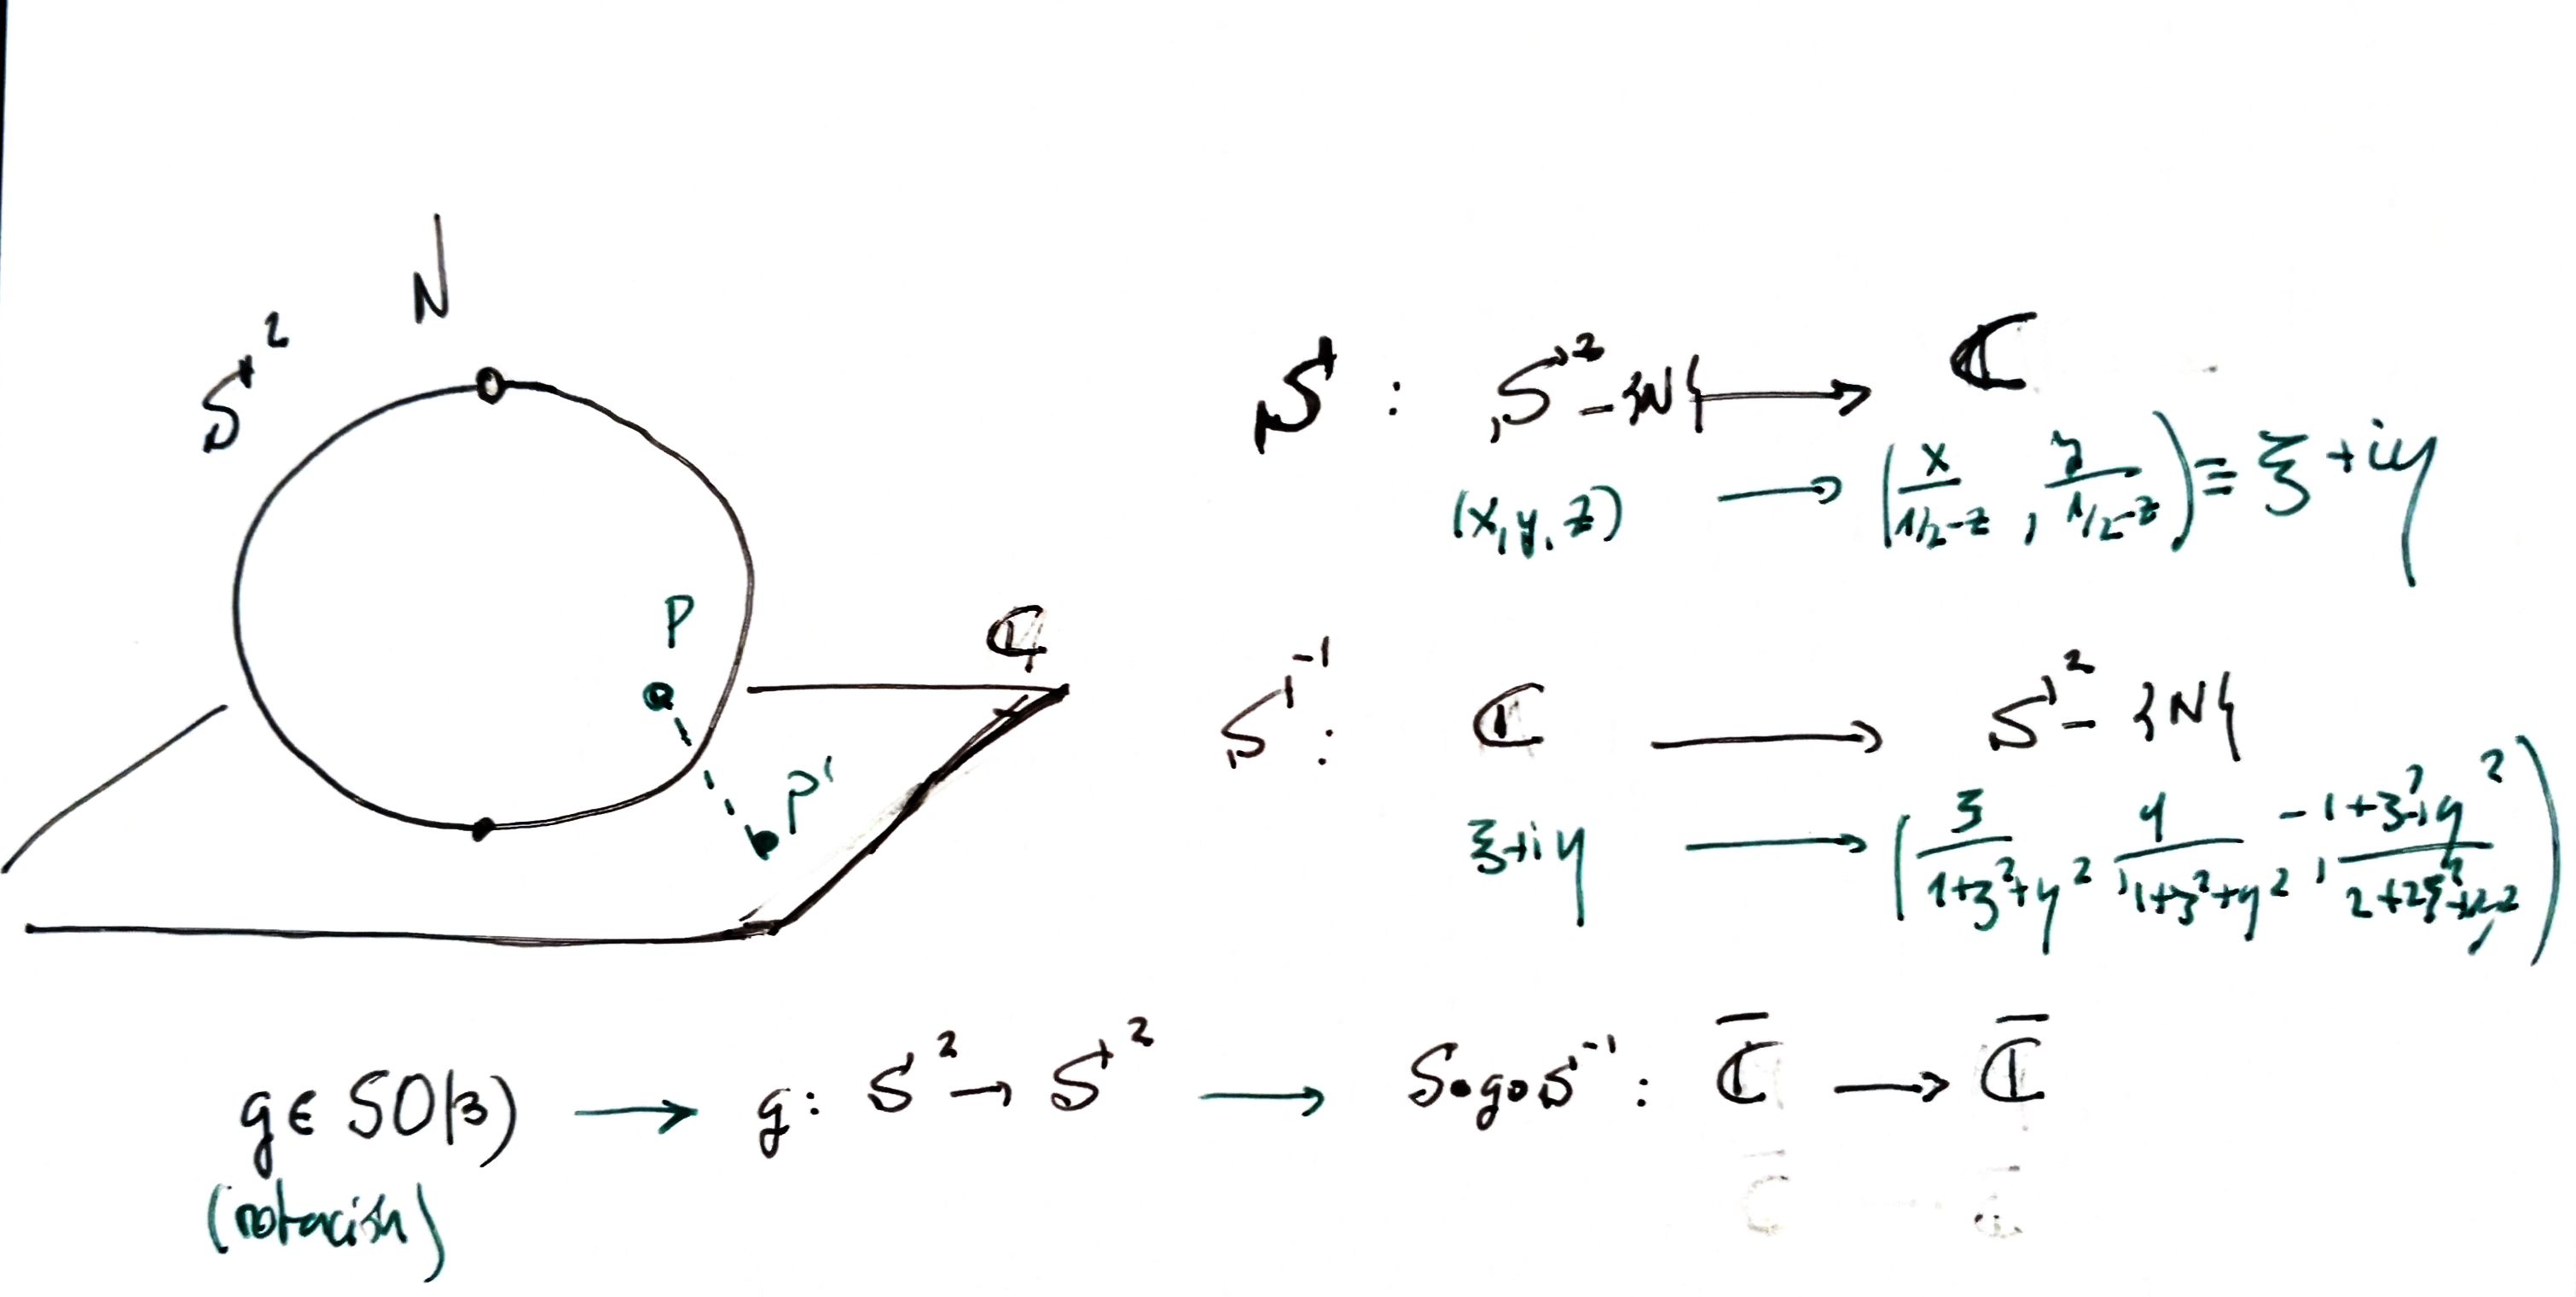 N
S²
P
P'
ℂ
S : S² - {N} ⟶ ℂ
(x, y, z) ⟶ (x/(1/2-z), y/(1/2-z)) ≡ ξ+iη
S⁻¹ : ℂ ⟶ S² - {N}
ξ+iη ⟶ (ξ/(1+ξ²+η²), η/(1+ξ²+η²), (-1+ξ²+η²)/(2+2ξ²+2η²))
g ∈ SO(3) ⟶ g: S² → S² ⟶ S∘g∘S⁻¹ : ℂ̅ ⟶ ℂ̅
(rotación)